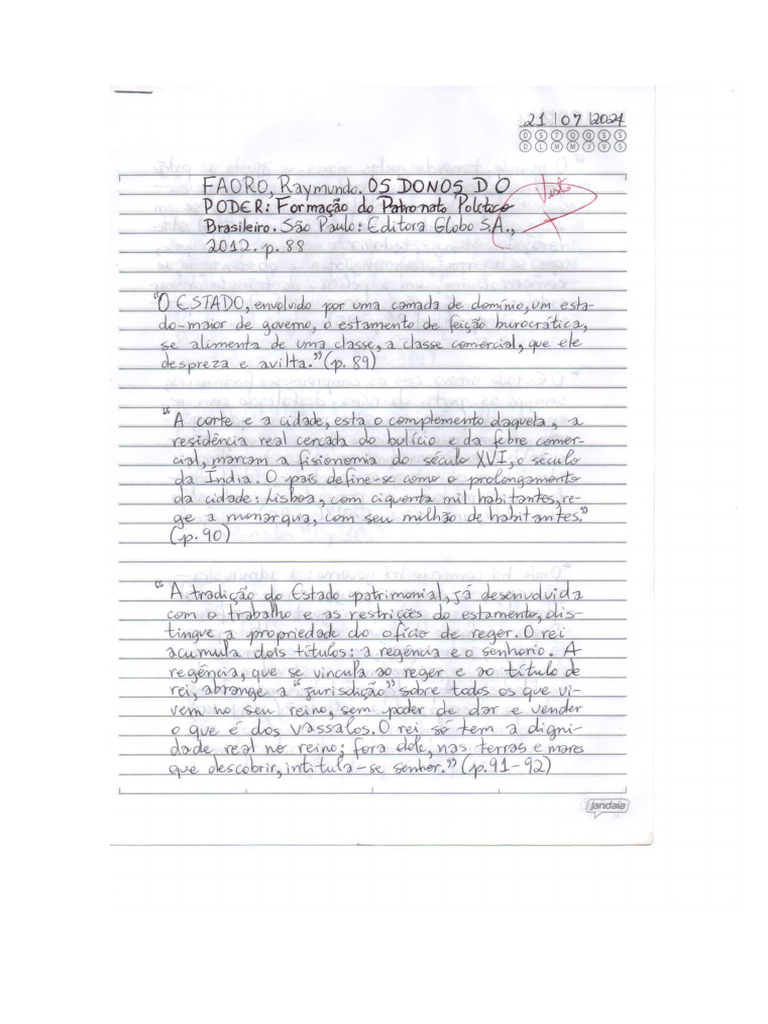 21/07/2024
D S T Q Q S S
D L M M J V S
FAORO, Raymundo. OS DONOS DO
PODER: Formação do Patronato Político
Brasileiro. São Paulo: Editora Globo S.A.,
2012. p. 88
Visto
"O ESTADO, envolvido por uma camada de domínio, um esta-
do-maior de governo, o estamento de feição burocrática,
se alimenta de uma classe, a classe comercial, que ele
despreza e avilta." (p. 89)
"A corte e a cidade, esta o complemento daquela, a
residência real cercada do bulício e da febre comer-
cial, marcam a fisionomia do século XVI, o século
da Índia. O país define-se como o prolongamento
da cidade: Lisboa, com ciquenta mil habitantes, re-
ge a monarqua, com seu milhão de habitantes."
(p. 90)
"A tradição do Estado patrimonial, já desenvolvida
com o trabalho e as restrições do estamento, dis-
tingue a propriedade do ofício de reger. O rei
acumula dois títulos: a regência e o senhorio. A
regência, que se vincula ao reger e ao título de
rei, abrange a "jurisdição" sobre todos os que vi-
vem no seu reino, sem poder de dar e vender
o que é dos vassalos. O rei só tem a digni-
dade real no reino; fora dele, nas terras e mares
que descobrir, intitula-se senhor." (p. 91-92)
jandaia